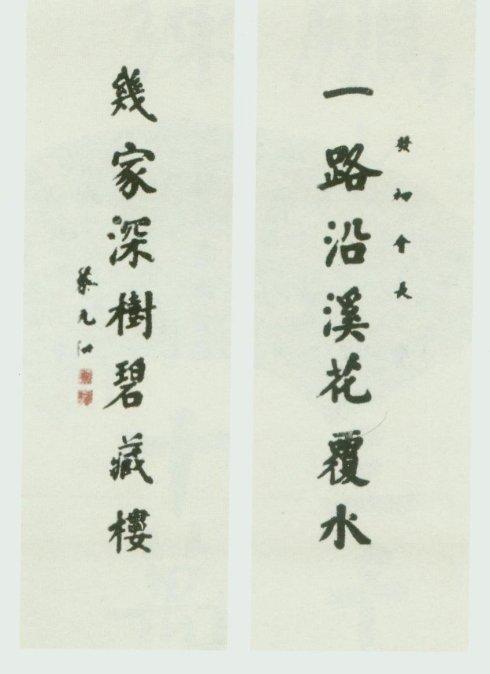 一路沿溪花覆水
初會長
幾家深樹碧藏樓
蔡元